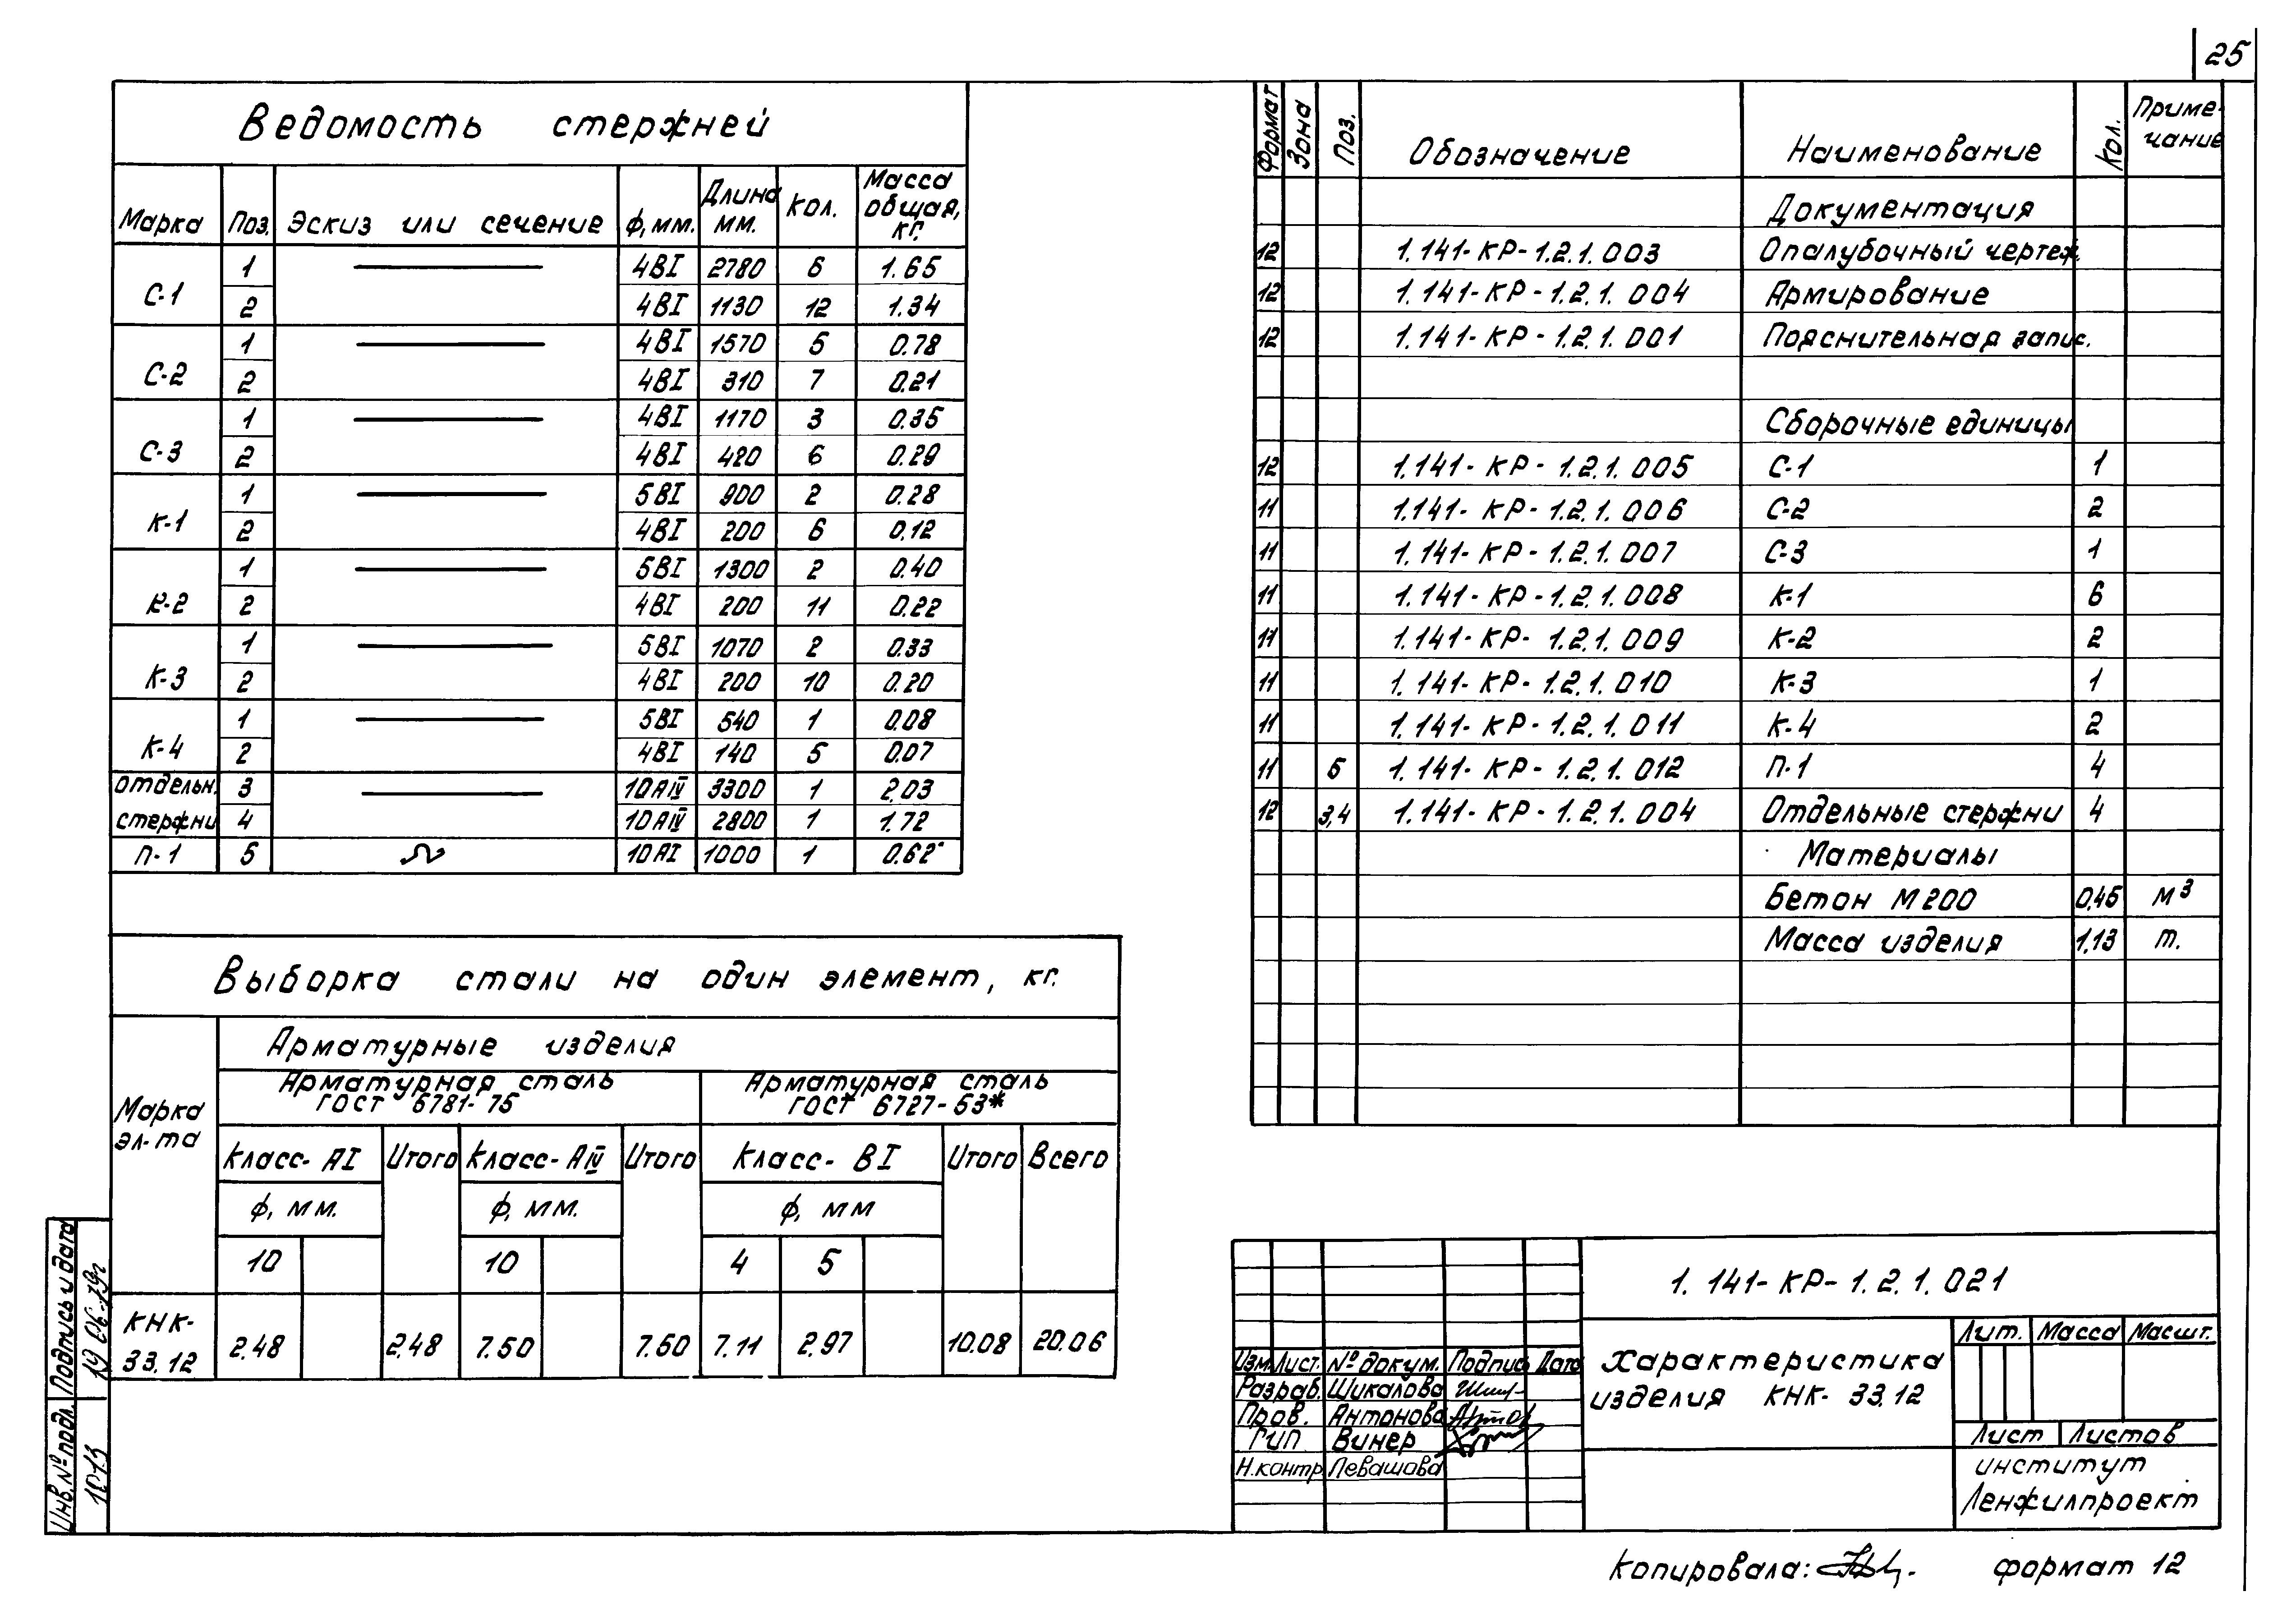 25
Ведомость стержней
Марка Поз. Эскиз или сечение ф, мм. Длина мм. Кол. Масса общая, кг.
С-1 1 4ВI 2780 6 1.65
2 4ВI 1130 12 1.34
С-2 1 4ВI 1570 5 0.78
2 4ВI 310 7 0.21
С-3 1 4ВI 1170 3 0.35
2 4ВI 420 6 0.29
К-1 1 5ВI 900 2 0.28
2 4ВI 200 6 0.12
К-2 1 5ВI 1300 2 0.40
2 4ВI 200 11 0.22
К-3 1 5ВI 1070 2 0.33
2 4ВI 200 10 0.20
К-4 1 5ВI 540 1 0.08
2 4ВI 140 5 0.07
отдельн. 3 10АIV 3300 1 2.03
стержни 4 10АIV 2800 1 1.72
П-1 5 10АI 1000 1 0.62
Выборка стали на один элемент, кг.
Марка эл-та
Арматурные изделия
Арматурная сталь ГОСТ 5781-75
Арматурная сталь ГОСТ 6727-53*
Класс-АI Итого Класс-АIV Итого Класс-ВI Итого Всего
ф, мм. ф, мм. ф, мм
10 10 4 5
КНК-33.12 2.48 2.48 7.50 7.50 7.11 2.97 10.08 20.06
Формат Зона Поз. Обозначение Наименование Кол. Примечание
Документация
12 1.141-КР-1.2.1.003 Опалубочный чертеж.
12 1.141-КР-1.2.1.004 Армирование
12 1.141-КР-1.2.1.001 Пояснительная запис.
Сборочные единицы
12 1.141-КР-1.2.1.005 С-1 1
11 1.141-КР-1.2.1.006 С-2 2
11 1.141-КР-1.2.1.007 С-3 1
11 1.141-КР-1.2.1.008 К-1 6
11 1.141-КР-1.2.1.009 К-2 2
11 1.141-КР-1.2.1.010 К-3 1
11 1.141-КР-1.2.1.011 К-4 2
11 5 1.141-КР-1.2.1.012 П-1 4
12 3,4 1.141-КР-1.2.1.004 Отдельные стержни 4
Материалы
Бетон М200 0,45 м³
Масса изделия 1,13 т.
1.141-КР-1.2.1.021
Характеристика
изделия КНК-33.12
Лит. Масса Масшт.
Лист Листов
институт
Ленжилпроект
Изм. Лист. № докум. Подпись Дата
Разраб. Шикалова
Пров. Антонова
ГИП Винер
Н.контр Левашова
Инв. № подл. Подпись и дата
Копировала: формат 12